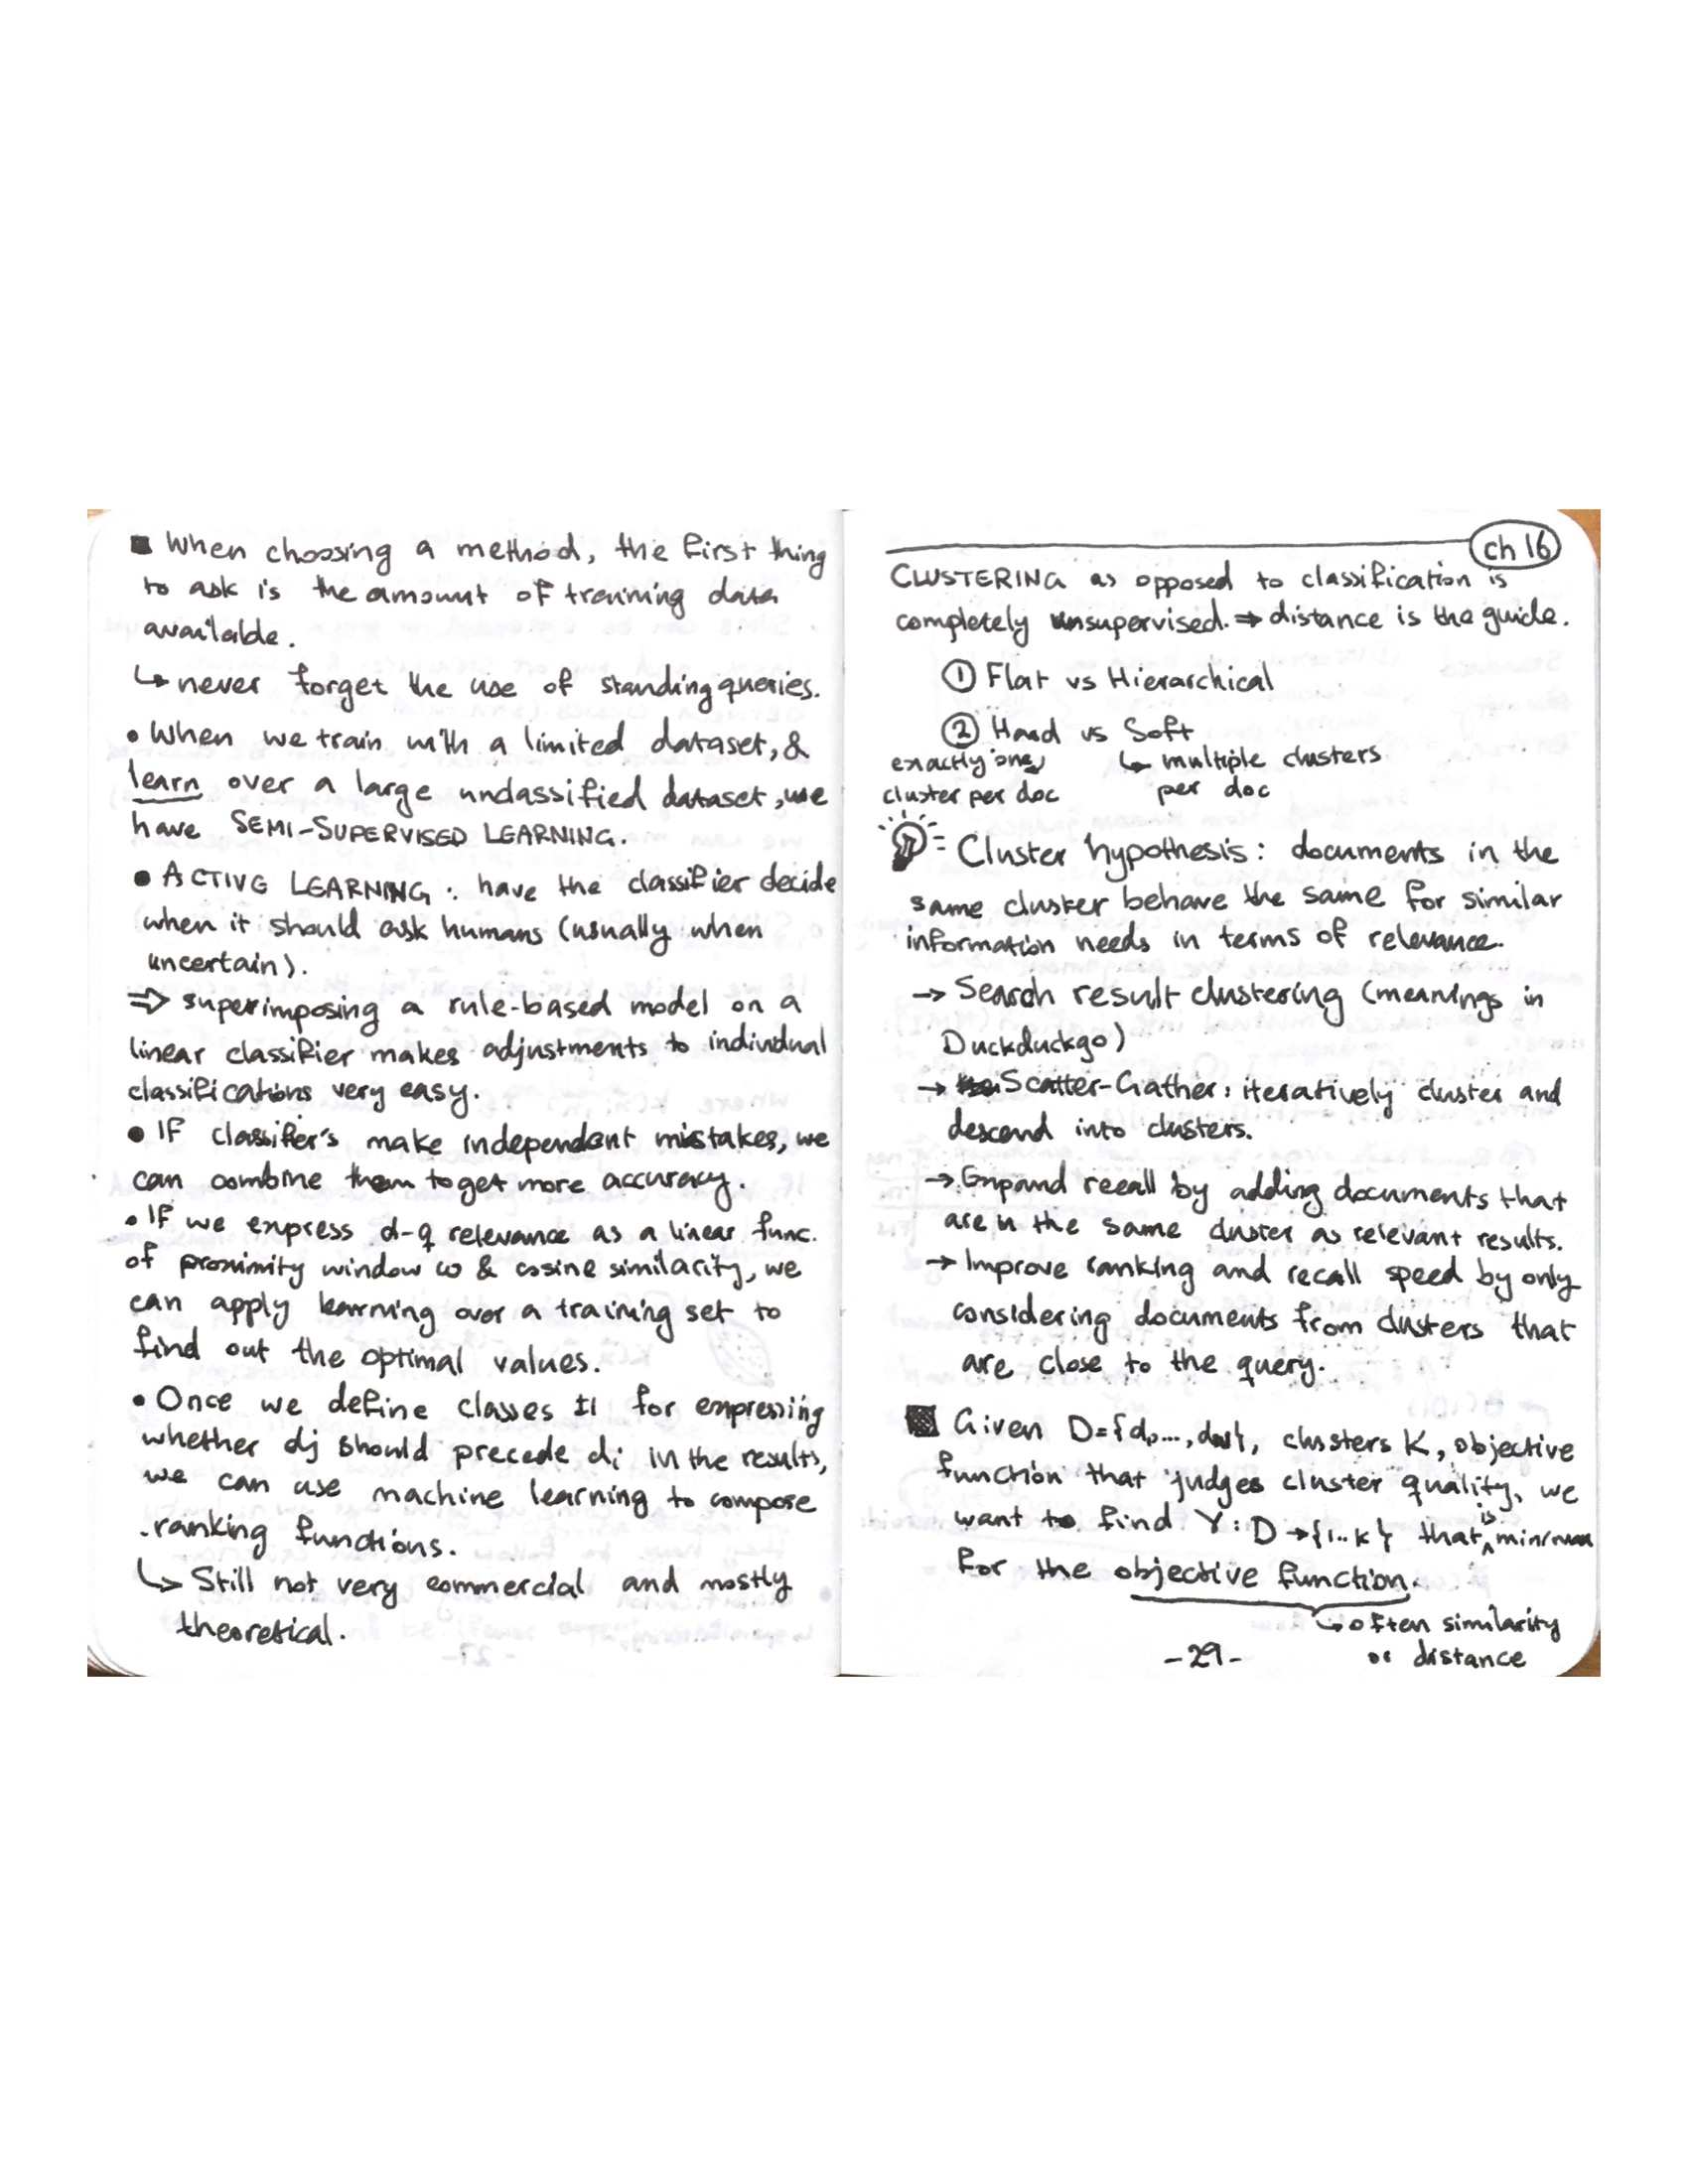 ■ When choosing a method, the first thing
to ask is the amount of training data
available.
↳ never forget the use of standing queries.
• When we train with a limited dataset, &
learn over a large unclassified dataset, we
have SEMI-SUPERVISED LEARNING.
• ACTIVE LEARNING: have the classifier decide
when it should ask humans (usually when
uncertain).
⇒ superimposing a rule-based model on a
linear classifier makes adjustments to individual
classifications very easy.
• If classifier's make independent mistakes, we
can combine them to get more accuracy.
• If we express d-q relevance as a linear func.
of proximity window ω & cosine similarity, we
can apply learning over a training set to
find out the optimal values.
• Once we define classes ±1 for expressing
whether dj should precede di in the results,
we can use machine learning to compose
ranking functions.
↳ Still not very commercial and mostly
theoretical.
ch 16
CLUSTERING as opposed to classification is
completely unsupervised. ⇒ distance is the guide.
① Flat vs Hierarchical
② Hard vs Soft
exactly one ↲ ↳ multiple clusters
cluster per doc per doc
Cluster hypothesis: documents in the
same cluster behave the same for similar
information needs in terms of relevance.
→ Search result clustering (meanings in
Duckduckgo)
→ Scatter-Gather: iteratively cluster and
descend into clusters.
→ Expand recall by adding documents that
are in the same cluster as relevant results.
→ Improve ranking and recall speed by only
considering documents from clusters that
are close to the query.
■ Given D={d1,...,dN}, clusters K, objective
function that judges cluster quality, we
want to find γ: D→{1..K} that is min/max
for the objective function.
↳ often similarity
or distance
-29-